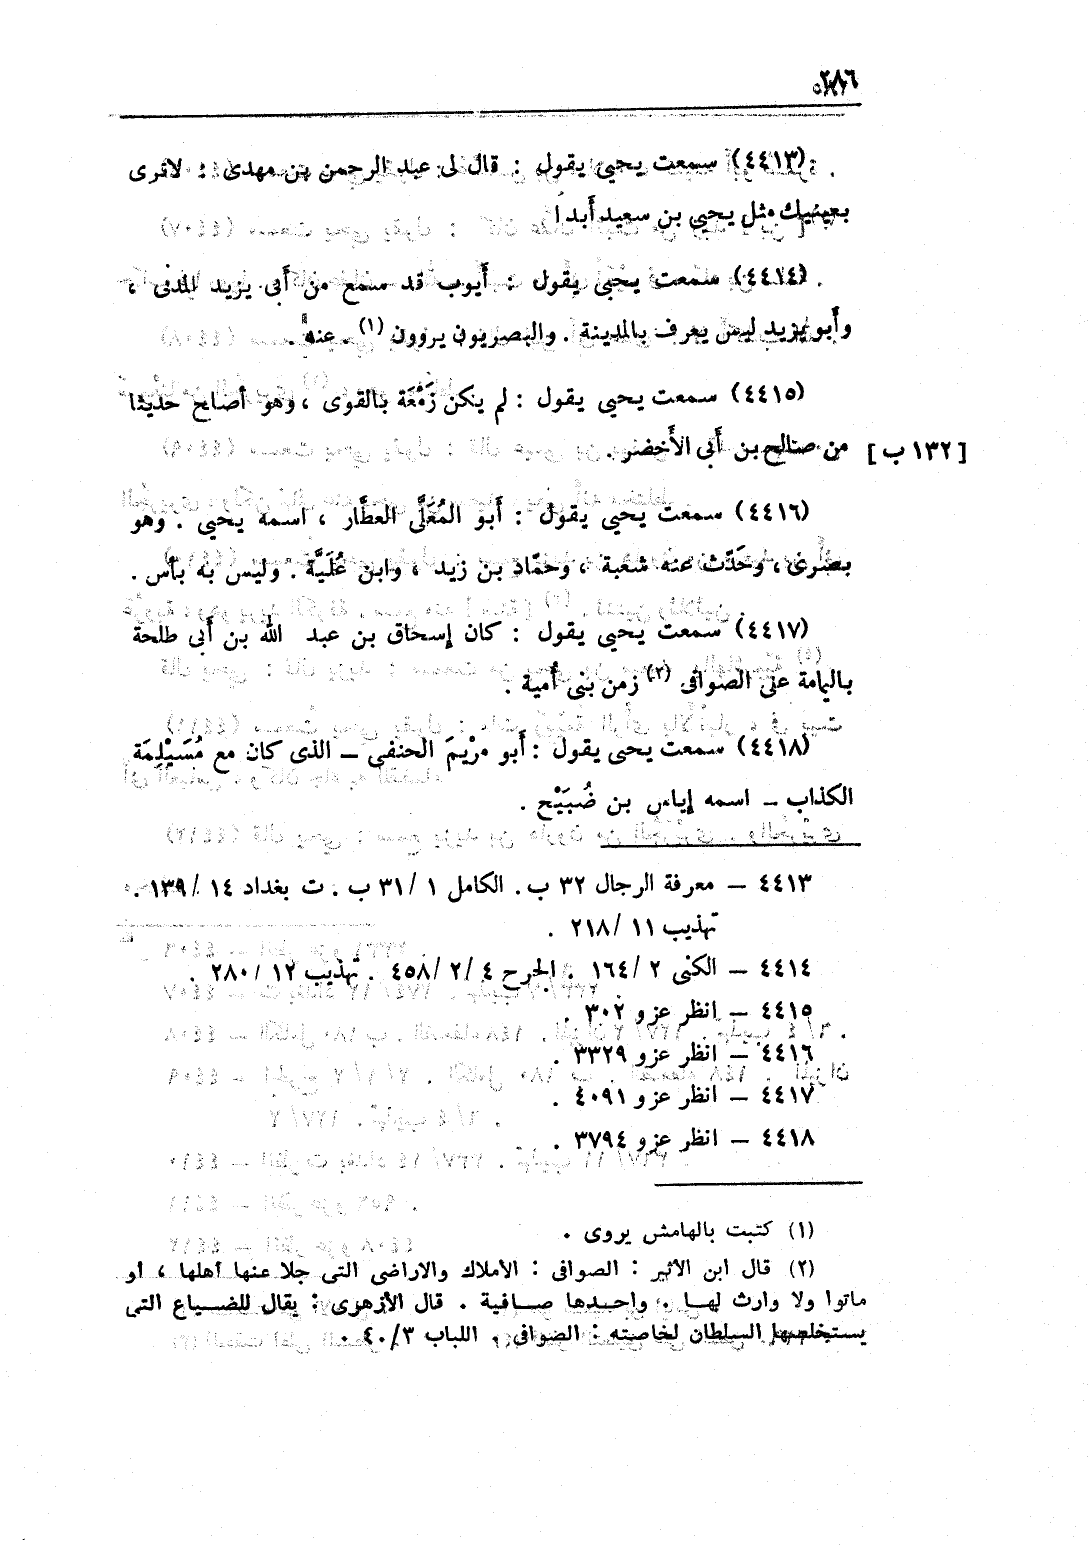 ٢٨٦
(٤٤١٣) سمعت يحيى يقول : قال لى عبد الرحمن بن مهدى : لاترى
بعينيك مثل يحيى بن سعيد أبداً
(٤٤١٤) سمعت يحيى يقول : أيوب قد سمع من أبى يزيد المدنى ،
وأبو يزيد ليس يعرف بالمدينة . والبصريون يروون (١) عنه
(٤٤١٥) سمعت يحيى يقول : لم يكن زَمْعَة بالقوى ، وهو أصلح حديثا
[ ١٣٢ ب ] من صالح بن أبى الأَخضر .
(٤٤١٦) سمعت يحيى يقول : أَبو المُعَلَّى العطَّار ، اسمه يحيى . وهو
بصرى ، وحَدّث عنه شعبة ، وحمّاد بن زيد ، وابن عُلَيَّة . وليس به بأس .
(٤٤١٧) سمعت يحيى يقول : كان إسحاق بن عبد الله بن أبى طلحة
باليمامة على الصوافى (٢) زمن بنى أُمية .
(٤٤١٨) سمعت يحيى يقول : أَبو مرْيمَ الحنفى – الذى كان مع مُسَيْلِمَة
الكذاب – اسمه إياس بن ضُبَيْح .
٤٤١٣ – معرفة الرجال ٣٢ ب. الكامل ١ /٣١ ب . ت بغداد ١٤ /١٣٩ .
تهذيب ١١ /٢١٨ .
٤٤١٤ – الكنى ٢ /١٦٤ . الجرح ٤ /٢ /٤٥٨ . تهذيب ١٢ /٢٨٠ .
٤٤١٥ – انظر عزو ٣٠٢ .
٤٤١٦ – انظر عزو ٣٣٢٩ .
٤٤١٧ – انظر عزو ٤٠٩١ .
٤٤١٨ – انظر عزو ٣٧٩٤ .
(١) كتبت بالهامش يروى .
(٢) قال ابن الأثير : الصوافى : الأملاك والاراضى التى جلا عنها أهلها ، أو
ماتوا ولا وارث لهـا . واحـدها صـافية . قال الأزهرى : يقال للضـياع التى
يستخلصها السلطان لخاصته : الصوافى . اللباب ٤٠/٣ .